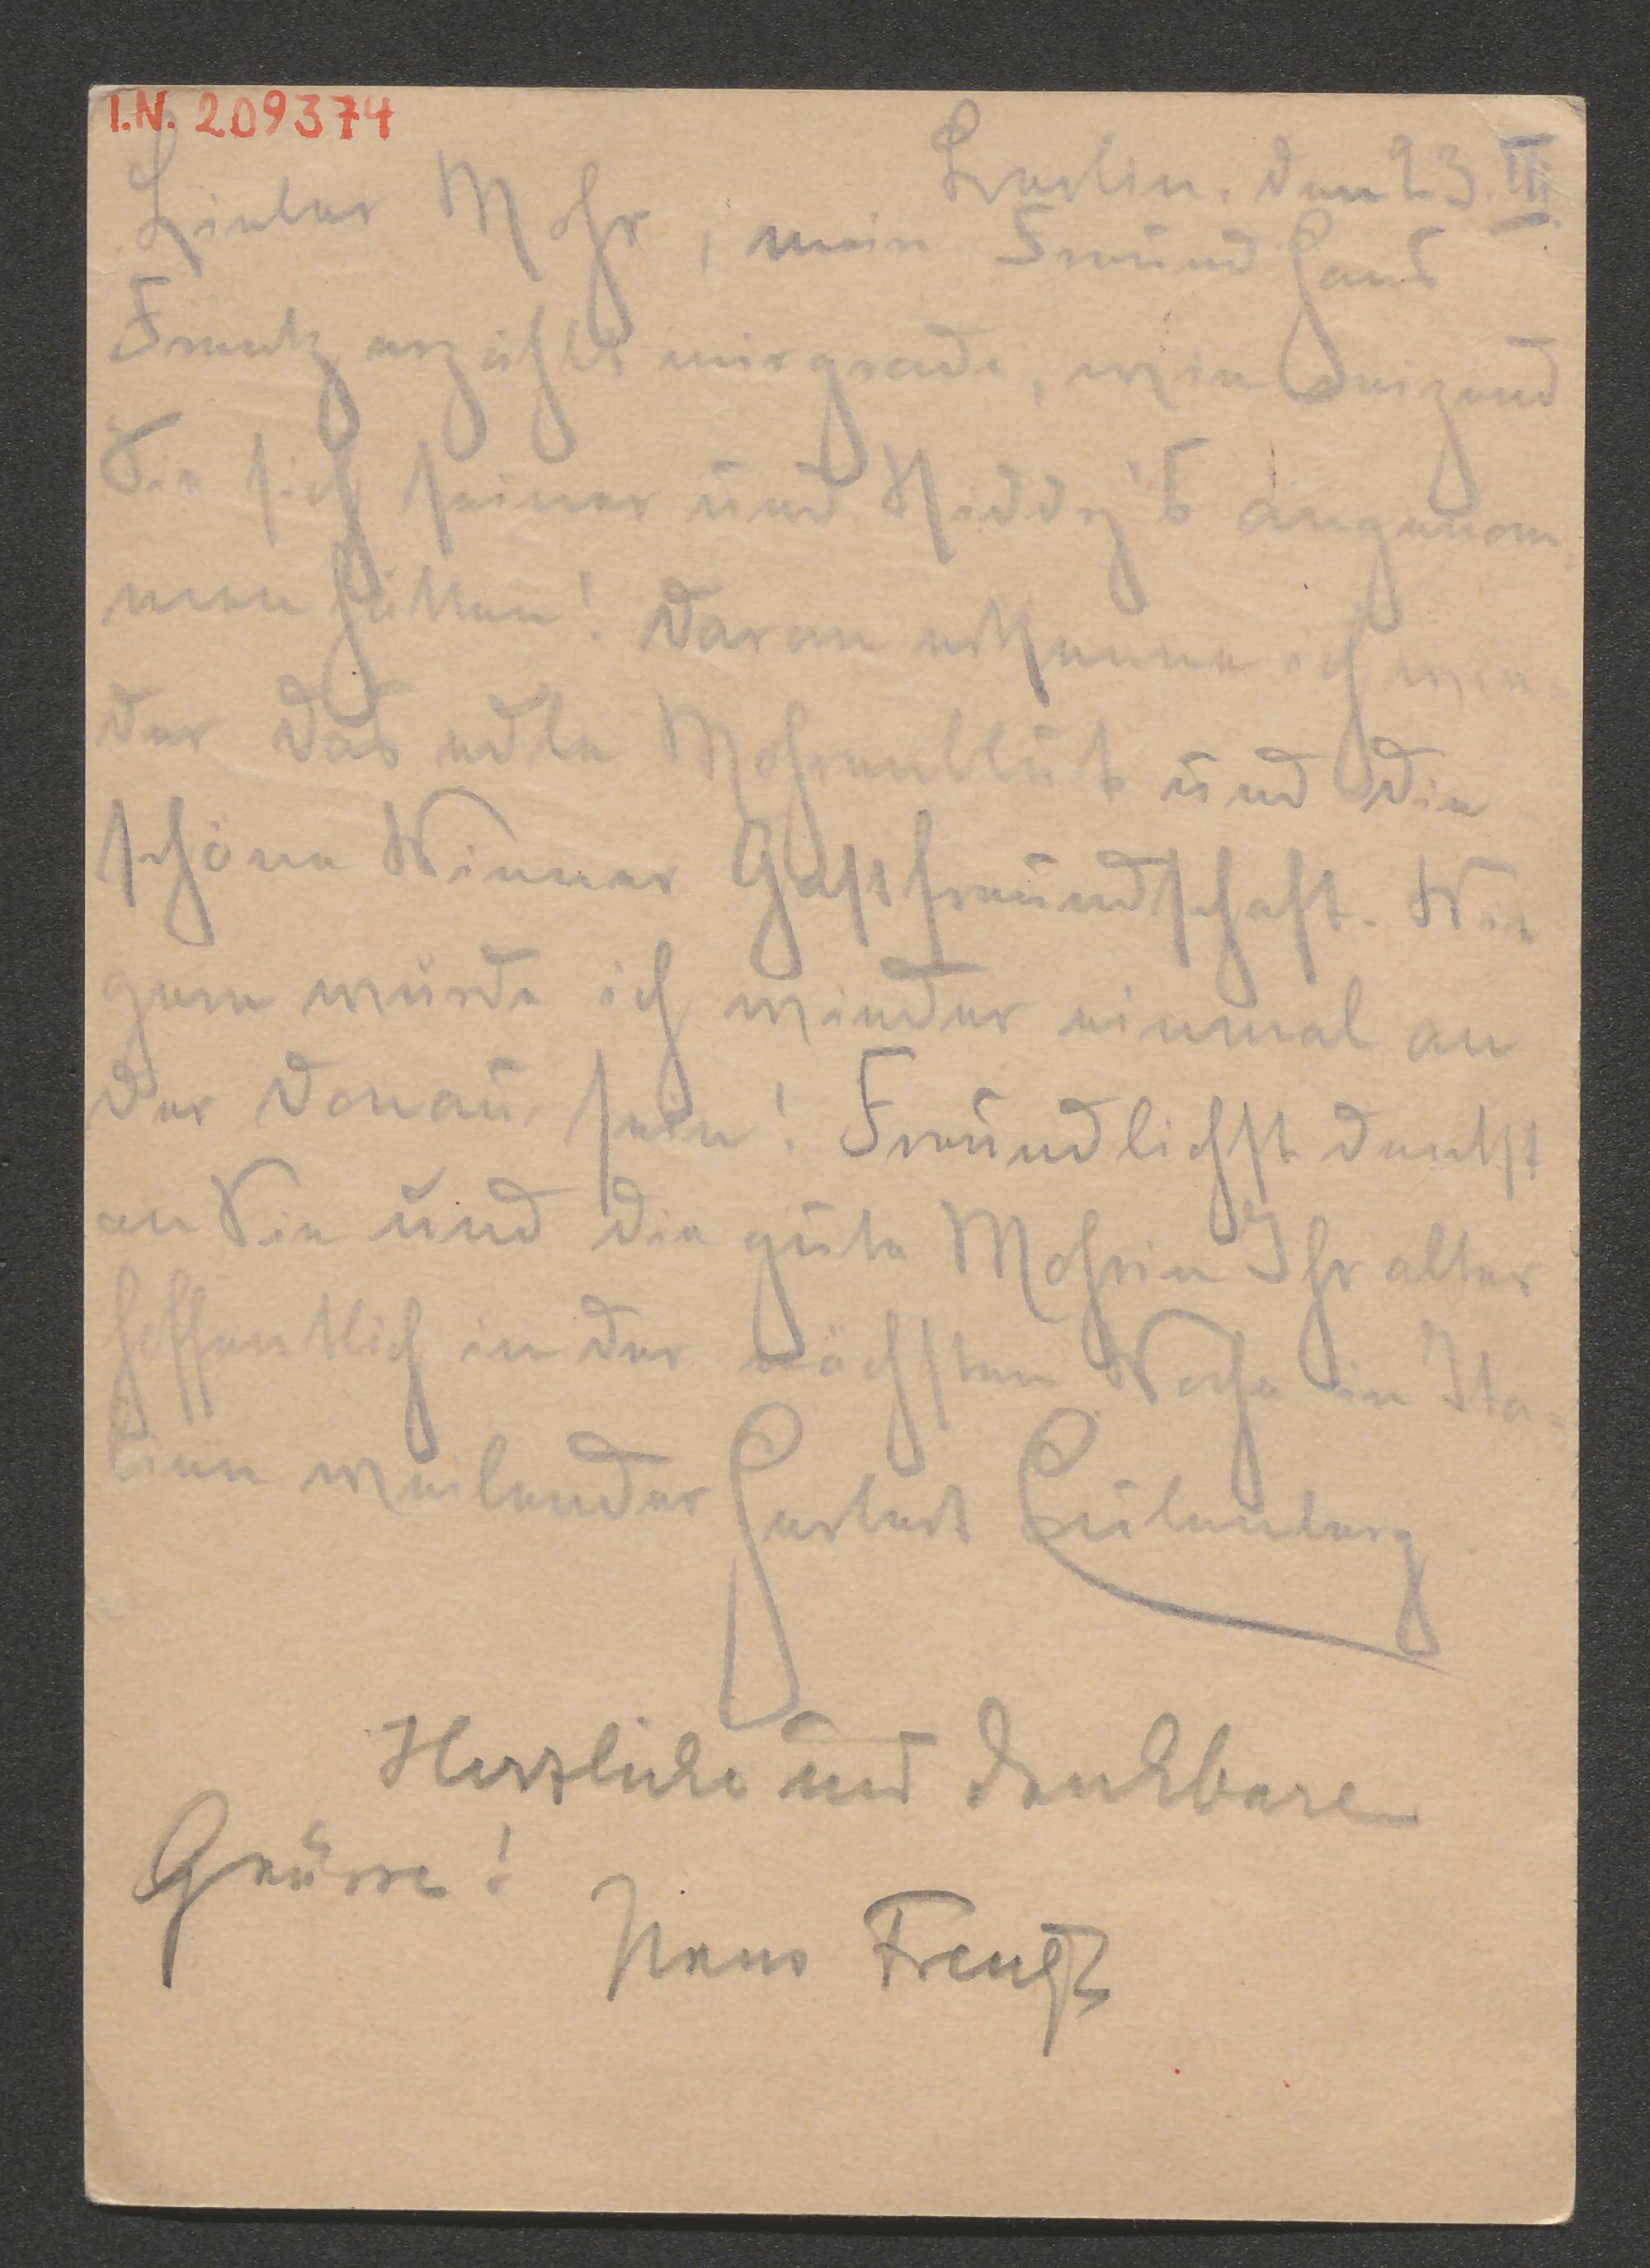 I.N. 209374
Berlin. den 23. III.
Lieber Mohr, mein Freund Hans
Frentz erzählt mir grade, wie reizend
Sie sich seiner und Hiddy's angenom-
men hätten! Daran erkenne ich wie-
der das edle Mohrenblut und die
schöne Wiener Gastfreundschaft. Wie
gern würde ich wieder einmal an
der Donau sein! Freundlichst denkst
an Sie und die gute Mohrin Ihr alter
hoffentlich in der nächsten Woche in Ita-
lien weilender Herbert Eulenberg
Herzliche und dankbare
Grüsse!
Hans Frentz